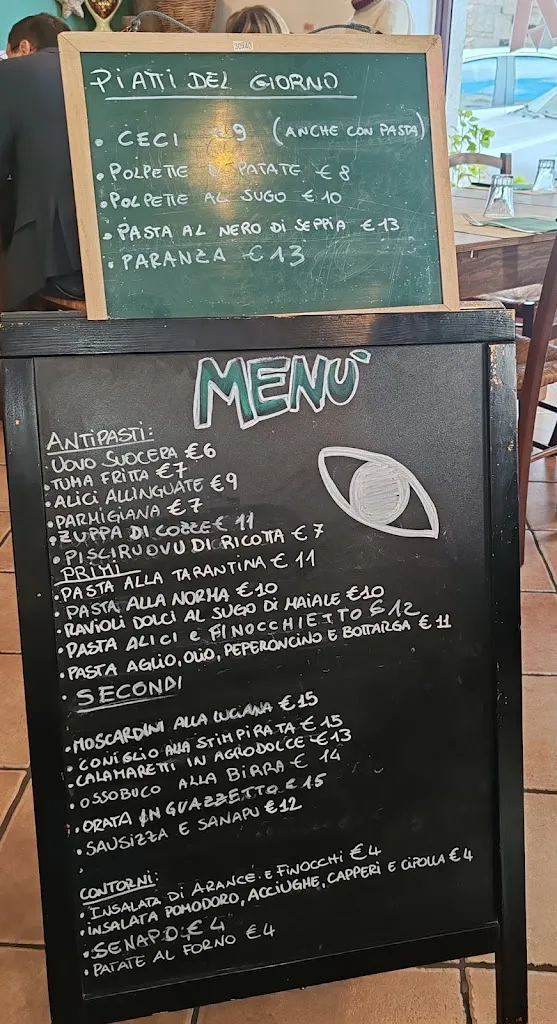 30x40
PIATTI DEL GIORNO
• CECI €9 (ANCHE CON PASTA)
• POLPETTE PATATE €8
• POLPETTE AL SUGO €10
• PASTA AL NERO DI SEPPIA €13
• PARANZA €13
MENU`
ANTIPASTI:
• UOVO SUOCERA €6
• TUMA FRITTA €7
• ALICI ALLINGUATE €9
• PARMIGIANA €7
• ZUPPA DI COZZE € 11
• PISCIRUOVU DI RICOTTA €7
PRIMI
• PASTA ALLA TARANTINA € 11
• PASTA ALLA NORMA €10
• RAVIOLI DOLCI AL SUGO DI MAIALE €10
• PASTA ALICI E FINOCCHIETTO €12
• PASTA AGLIO, OLIO, PEPERONCINO E BOTTARGA €11
• SECONDI
• MOSCARDINI ALLA LUCIANA €15
• CONIGLIO ALLA STIMPIRATA €15
• CALAMARETTI IN AGRODOLCE €13
• OSSOBUCO ALLA BIRRA € 14
• ORATA IN GUAZZETTO €15
• SAUSIZZA E SANAPU €12
•
CONTORNI:
• INSALATA DI ARANCE E FINOCCHI €4
• INSALATA POMODORO, ACCIUGHE, CAPPERI E CIPOLLA €4
• SENAPO €4
• PATATE AL FORNO €4